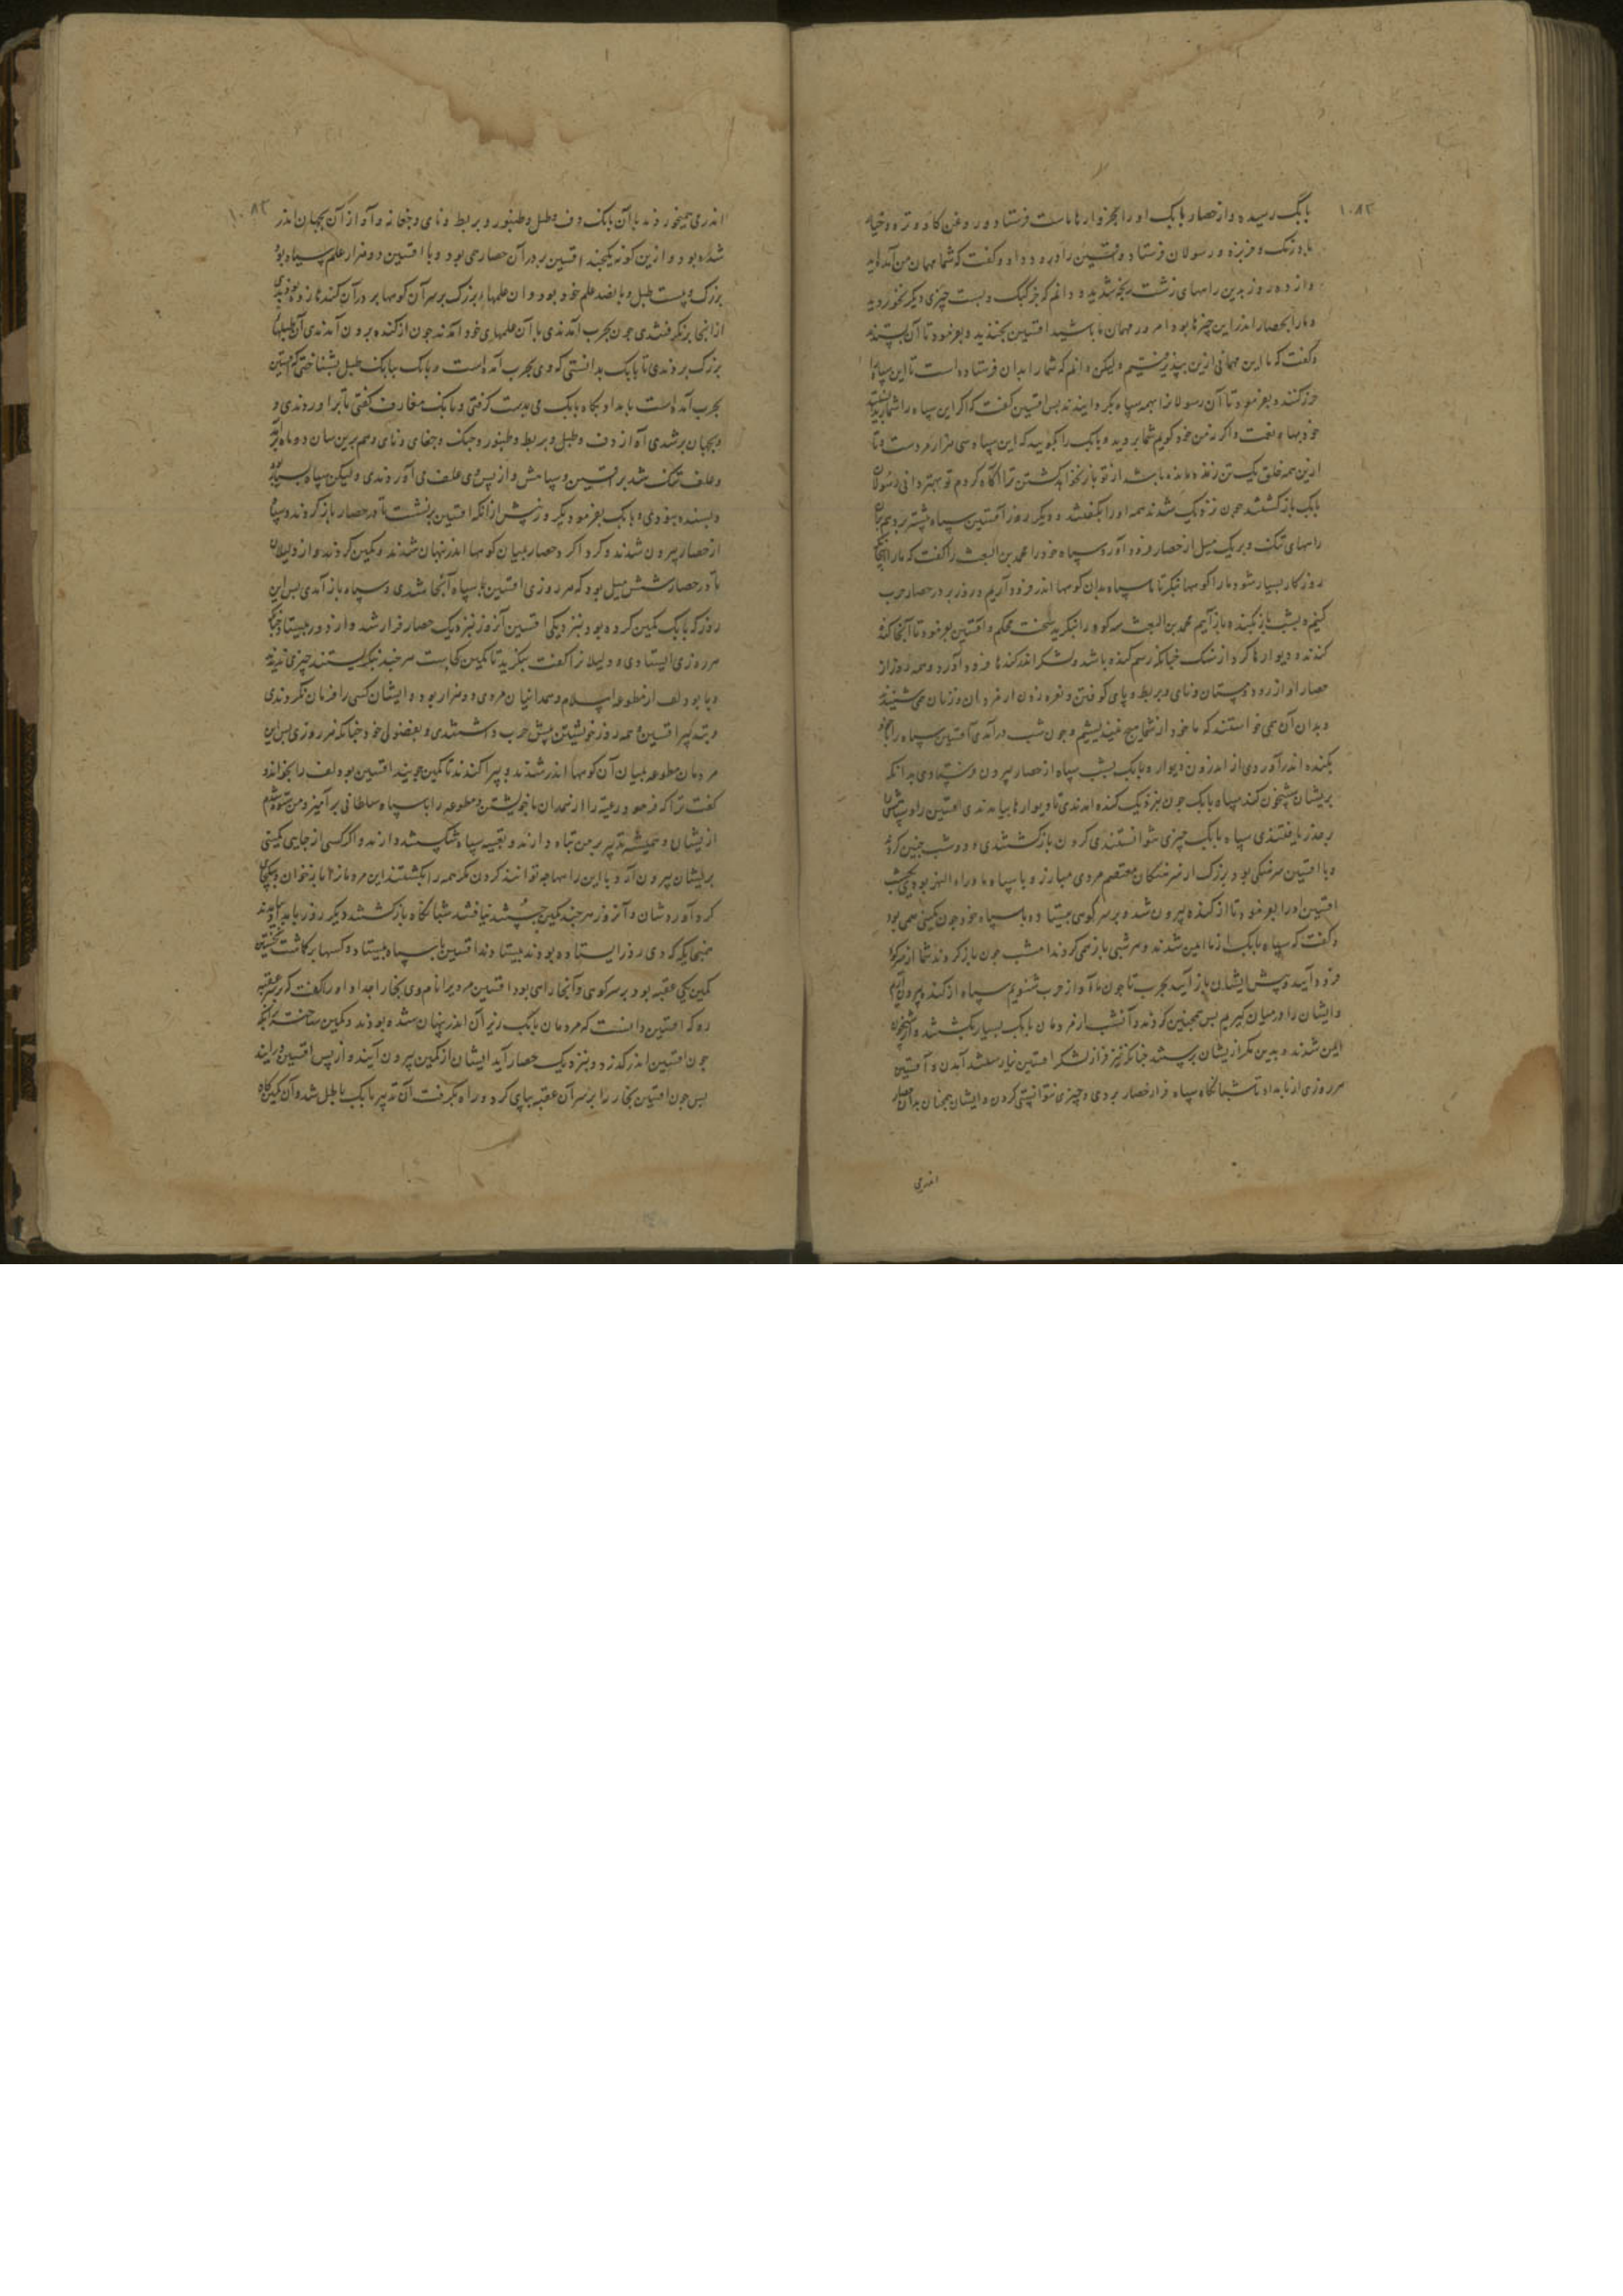 ۱۰۸۲
بابک رسیده و از حصار بابک او را بخروارها ماست فرستاد و روغن کاو و تره و خیار
بادرنک و خربزه و رسولان فرستاد و افشین را درود داد و کفت که شما مهمان من آمده‌اید
و از ده روز بدین راههای زشت رنجه شدید و دانم که جز کعک و پست چیزی دیکر نخوردید
و ما را بحصار اندر این چیزها بود امروز مهمان ما باشید افشین بخندید و بفرمود تا آن بستدند
و کفت که ما این مهمانی ازین بپذیرفتیم ولیکن دانم که شما را بدان فرستاده است تا این سپاه ما
حزر کنند و بفرمود تا آن رسولانرا همه سپاه بکردانیدند پس افشین کفت که اکر این سپاه را شما ندانستید
من خود کویم شما بروید و بابک را بکویید که این سپاه سی هزار مرد است و تا
ازین همه خلق یک تن زنده مانده باشد از تو باز نخواهد کشتن ترا آکاه کردم تو بهتر دانی رسولان
بابک بازکشتند چون نزدیک شدند همه او را بکفتند و دیکر روز افشین سپاه پیشتر برد
راههای تنک و بر یک میل از حصار فرود آورد سپاه خود را محمد بن البعیث را کفت که ما را اینجا
روزکار بسیار شود ما را کوهها بنکر تا ما سپاه بدان کوهها اندر فرود آریم و روز بر در حصار حرب
کنیم و بشب باز بکنده باز آییم محمد بن البعیث سه کوه را بنکرید سخت محکم و افشین بفرمود تا آنجا کنده
کندند و دیوارها کرد از سنک چنانکه رسم کنده باشد و لشکر اندر کندها فرود آورد و همه روز از
حصار آواز رود و دستان و نای و بربط و پای کوفتن و نعره زدن از مردان و زنان می شنیدند
و بدان آن همی خواستند که ما خود از شما هیچ نمی اندیشیم و چون شب در آمدی افشین سپاه را
بکنده اندر آوردی از اندرون دیوار و بابک بشب سپاه از حصار بیرون فرستادی بدانکه
بریشان شبیخون کند سپاه بابک چون بنزدیک کنده آمدندی تا دیوارها بیامدندی افشین را و سپاهش
بر حذر یافتندی سپاه بابک چیزی نتوانستندی کردن بازکشتندی و دو شب چنین کردند
و با افشین سرهنکی بود بزرک از سرهنکان معتصم مردی مبارز و با سپاه ماوراءالنهر بود
افشین او را بفرمود تا از کنده بیرون شد و بر سر کوهی بیستاد و با سپاه خود چون کمینی همی بود
و کفت که سپاه بابک از ما ایمن شدند و هر شبی باز همی کردند امشب چون باز کردند شما از سر کوه
فرود آیید و پیش ایشان باز آیید بحرب تا چون ما آواز حرب شنویم سپاه از کنده بیرون آریم
و ایشان را در میان کیریم پس همچنین کردند و آنشب از مردمان بابک بسیار بکشتند و از شبیخون
ایمن شدند و بدین مکر ازیشان برستند چنانکه نیز فراز لشکر افشین نیارستند آمدن و افشین
هر روزی از بامداد تا شبانکاه سپاه فراز حصار بردی و چیزی نتوانستی کردن و ایشان همچنان
اندرمی
۱۰۸۳
اندر می همیخوردند با آن بانک دف و طبل و طنبور و بربط و نای و چغانه و آواز آن بجهان اندر
شده بود و ازین کونه یکچند افشین بر در آن حصار می بود و با افشین دو هزار علم سپاه بود
بزرک و بیست طبل و پانصد علم خود بود و آن علمهای بزرک بر سر آن کوهها بر در آن کندها زده بودندی
از انجا برنکرفتندی چون بحرب آمدندی با آن علمهای خود آمدند چون از کنده برون آمدندی آن طبلهای
بزرک بزدندی تا بابک بدانستی که وی بحرب آمده است و بابک ببانک طبل بشناختی که افشین
بحرب آمده است بامداد پکاه بابک می بدست کرفتی و بانک معازف کفتی تا برآوردندی و
بجهان بر شدی آواز دف و طبل و بربط و طنبور و چنک و چغانه و نای و هم برین سان دو ماه برآمد
و علف تنک شد بر افشین و سپاهش و از پس وی علف می آوردندی و لیکن سپاه بسیار بود
و بسنده نبودی و بابک بفرمود یکروز پیش از آنکه افشین برنشست تا در حصار باز کردند و سپاه
از حصار بیرون شدند و کرد اکرد حصار بمیان کوهها اندر پنهان شدند و کمین کردند و از دبیلان
تا در حصار شش میل بود که هر روزی افشین با سپاه آنجا شدی و سپاه باز آمدی پس این
روز که بابک کمین کرده بود بنزدیکی افشین آنروز نزدیک حصار فراز شد و از دور بیستاد چنانکه
هر روزی ایستادی و دلیلانرا کفت بنکرید تا کمین کجاست هر چند نکریستند چیزی ندیدند
و با بودلف از مطوعه اسلام و همدانیان مردی دو هزار بود و ایشان کسی را فرمان نکردندی
و بتدبیر افشین و همه روز خویشتن پیش حرب داشتندی و بفضولی خود چنانکه هر روزی پس این
مردمان مطوعه بمیان آن کوهها اندر شدند و پراکندند تا کمین جویند افشین بودلف را بخواند و
کفت ترا که فرمود رعیت را از همدان با خویشتن و مطوعه را با سپاه سلطانی برآمیزد من ستوه شدم
ازیشان و همیشه تدبیر بر من تباه دارند و تعبیه سپاه شکسته دارند و اکر کسی از جایی کمینی
بریشان بیرون آرد با این راهها چه توانند کردن مکر همه را بکشتند این مردمانرا باز خوان و یکجای
کرد آوردشان و آنروز هر چند کمین جستند نیافتند شبانکاه بازکشتند دیکر روز بامداد بیامدند
همچنانکه دی روز ایستاده بودند بیستادند افشین با سپاه بیستاد و کسها بر کماشت بجستن
کمین یکی عقبه بود بر سر کوهی و آنجا راهی بود افشین مردی را نام وی بخارا خداه او را کفت که بر سر عقبه
رو که افشین دانست که مردمان بابک زیر آن اندر پنهان شده بودند و کمین ساخته بر آنکه
چون افشین اندر کذرد و بنزدیک حصار آید ایشان از کمین بیرون آیند و از پس افشین در آیند
پس چون افشین بخارا را بر سر آن عقبه بپای کرد و راه بکرفت آن تدبیر بابک باطل شد و آن کمین کاه